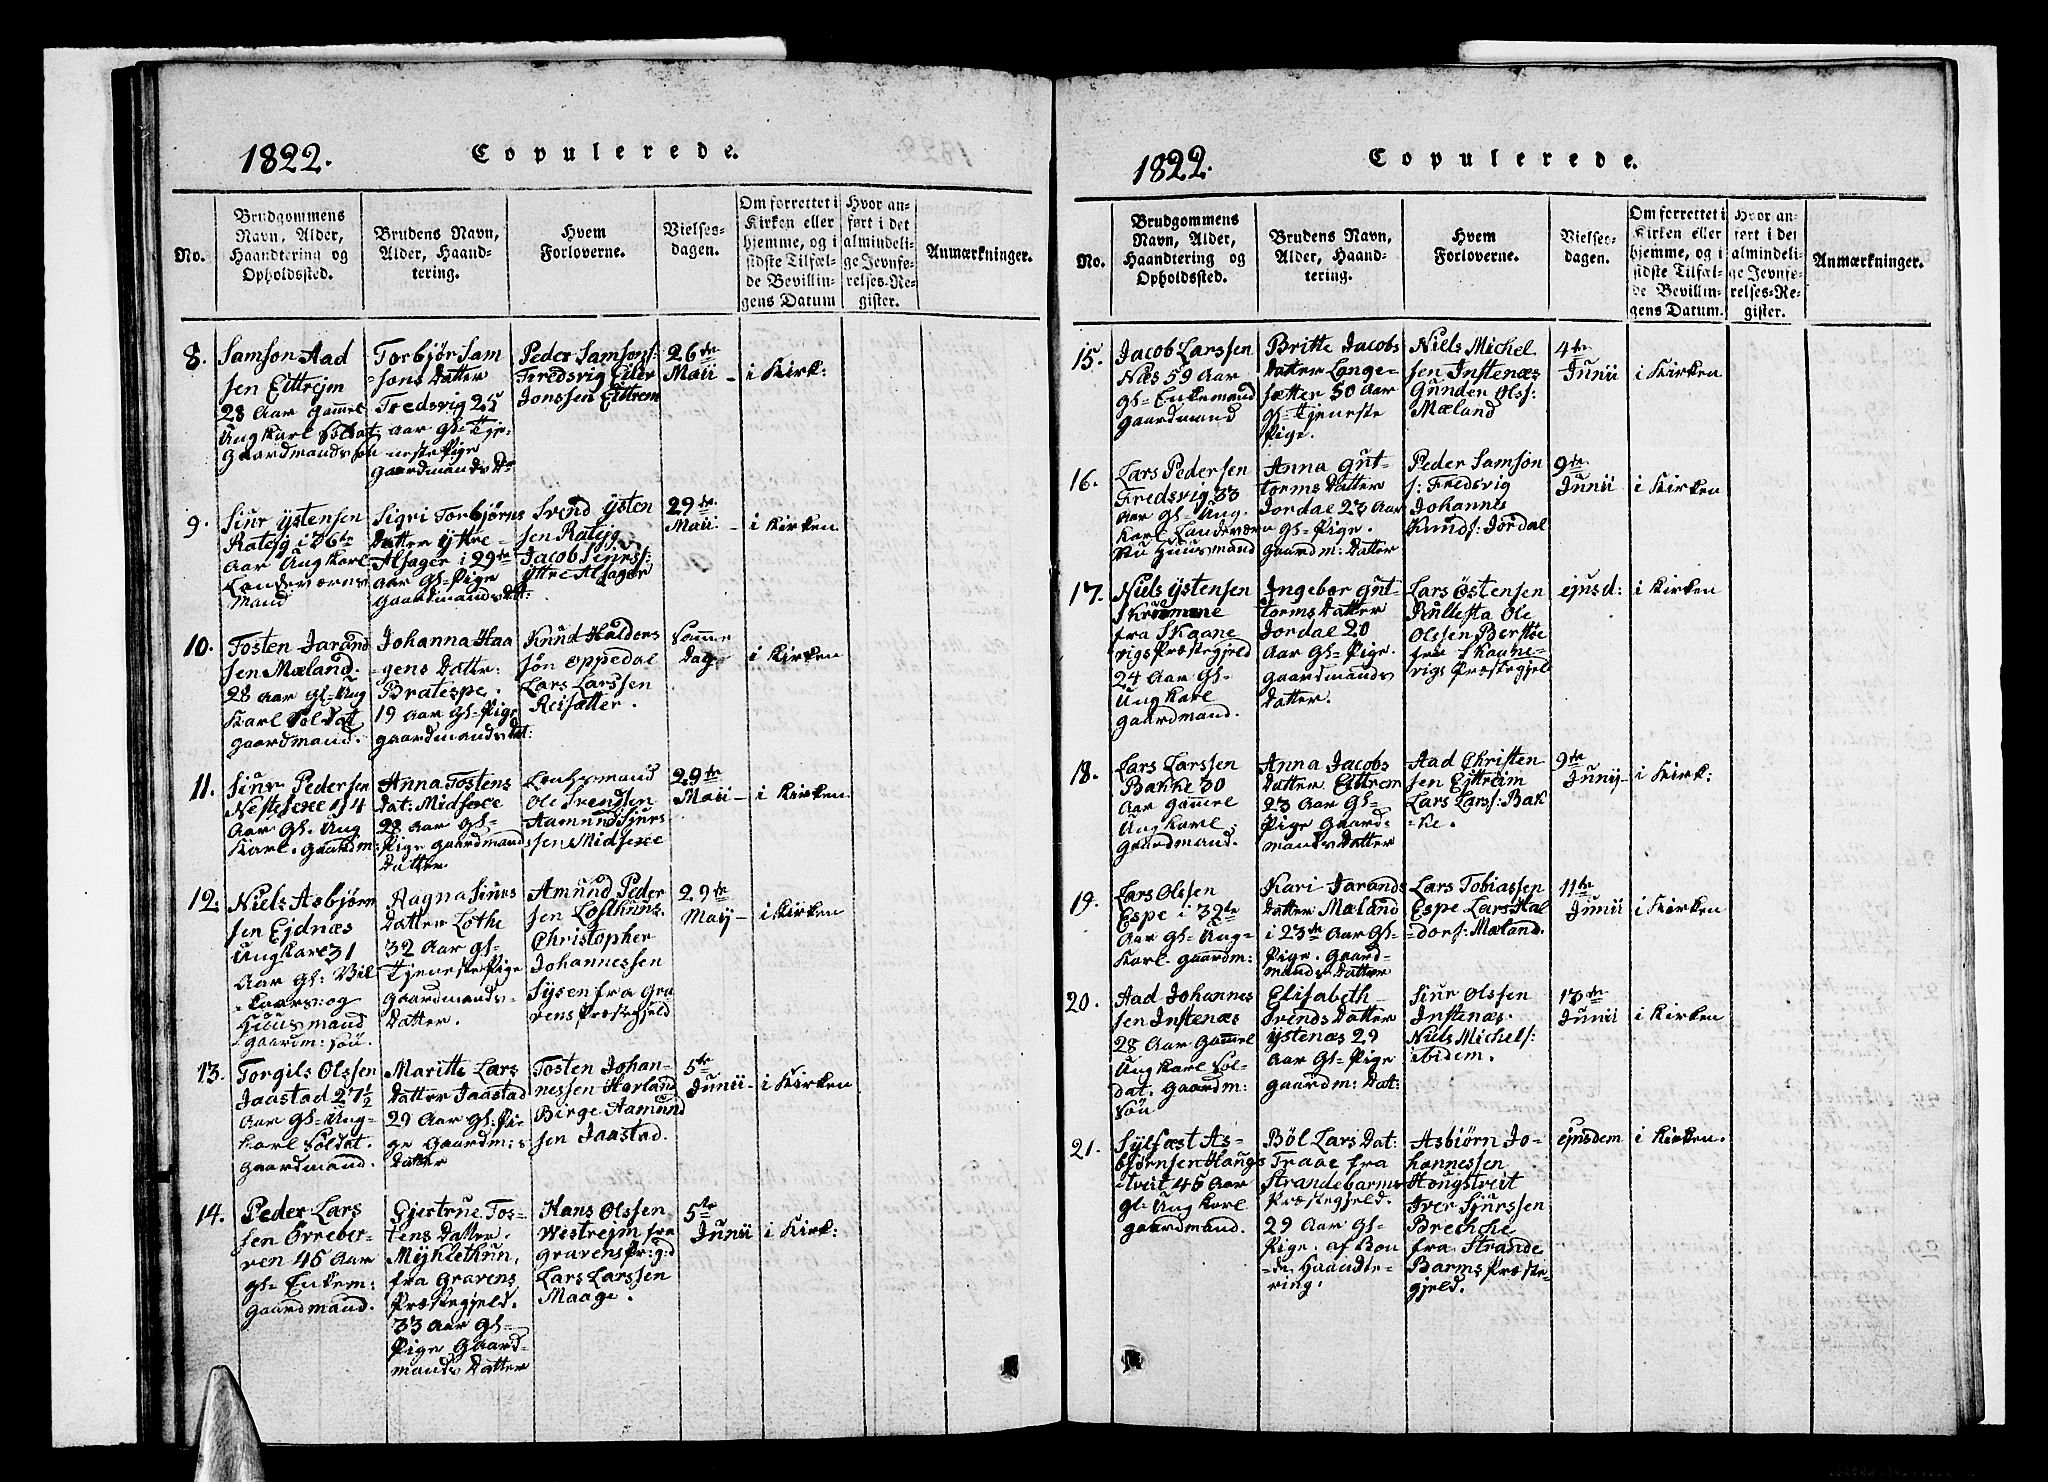 1822. Copulerede.
No.
Brudgommens
Navn, Alder,
Haandtering og
Opholdssted.
Brudens Navn,
Alder, Haand-
tering.
Hvem
Forloverne.
Vielses-
dagen.
Om forrettet i
Kirken eller
hjemme, og i
sidste Tilfæl-
de Bevillin-
gens Datum
Hvor an-
ført i det
almindeli-
ge Jevnfø-
relses-Re-
gister.
Anmærkninger.
8.
Samson Aad
sen Eittrejm
28 Aar gammel
Ungkarl Soldat
Gaardmandsson
Torbjør Sam
=sons Datter
Fredsvig 25
Aar Gl= Tje-
neste Pige
Gaardmands D
Peder Samsons:
Fredsvig Eiler
Jonssen Eittrem
26de
Maii -
i Kirk:
9.
Siur Ystensen
Rateig i 26de
Aar Ungkarl
Landeværns
Mand
Sigri Torbjørns
Datter Ytre-
Alsager i 29de
Aar Gl= Pige
Gaardmands Dat:
Svend Ysten
sen Rateig
Jacob Sjurs:
Yttre Alsager
29de
Maii -
i Kirken
10.
Tosten Jarand
sen Mæland.
28 Aar Gl= Ung
Karl Soldat
Gaardmand.
Johanna Haa
=gens Datter:
Bratespe.
19 Aar Gl= Pige
Gaardmands Dat:
Knud Haldors
søn Oppedal
Lars Larssen
Reisætter.
Samme
Dag
i Kirken
11.
Siur Pedersen
Aar Gl= Ung
Karl. Gaardm:
Anna Tostens
Dat: Midsexe
28 Aar Gl=
Pige Gaardmands
Datter
Lensmand
Ole Svendsen
Aamund Sjurs
sen Midsexe
29de
Maii -
i Kirken.
12.
Niels Asbjørn
sen Ejdnæs
Ungkarl 31
Aar Gl: Vil
=kaars: og
Huusmand
Gaardm: søn.
Ragna Siurs
Datter Lothe
32 Aar Gl=
Tjeneste Pige
Gaardmands-
Datter.
Amund Peder
sen Lofthuus
Christopher
Johannessen
Sysen fra Gra
vens Præstegjeld
29de
Maij -
i Kirken
13.
Torgils Olssen
Jaastad 27½
Aar Gl= Ung-
karl Soldat.
Gaardmand.
Maritte Lars
Datter Jaastad
29 Aar Gl: Pi-
ge Gaardm: s
Datter
Tosten Johan-
nessen Horland
Birge Aamund
sen Jaastad.
5te
Junii -
i Kirken
14.
Peder Lars
sen Ørreber-
ven 45 Aar
Gl= Enkem:
Gaardmand.
Gjertrue Tos-
tens Datter.
Myklethun,
fra Gravens
Præstegjeld.
33 Aar Gl=
Pige Gaard-
mands Datter
Hans Olssen
Westrejm fra
Gravens Pr: g:d
Lars Larssen
Maage.
5te
Junii
i Kirk:
1822. Copulerede.
No.
Brudgommens
Navn, Alder,
Haandtering og
Opholdssted.
Brudens Navn,
Alder, Haand-
tering.
Hvem
Forloverne.
Vielses-
dagen.
Om forrettet i
Kirken eller
hjemme, og i
sidste Tilfæl-
de Bevillin-
gens Datum.
Hvor an-
ført i det
almindeli-
ge Jevnfø-
relses-Re-
gister.
Anmærkninger.
15.
Jacob Larssen
Næs 59 Aar
Gl= Enkemand
Gaardmand
Britte Jacobs
Datter Lange-
sætter 50 Aar
Gl= Tjeneste
Pige.
Niels Michel
sen Instenæs
Gunder Olss:
Mæland
4de
Junii
i Kirken
16.
Lars Pedersen
Fredsvig 33
Aar Gl= Ung-
Karl Landeværn
Nu Huusmand
Anna Gut-
torms Datter
Jordal 23 Aar
Gl= Pige.
Gaardm: Datter
Peder Samson
s: Fredsvig
Johannes
Knuds: Jordal
9de
Junii
i Kirken
17.
Niels Ystensen
fra Skaane
vigs Præstegjeld
24 Aar Gl=
Ungkarl
Gaardmand.
Ingebor Gut-
torms Datter
Jordal 20
Aar Gl= Pige.
Gaardmands
Datter.
Lars Østensen
Rullesta Ole
Olssen Berstøe
fra Skaane-
vigs Præstegjel
ejusd:
i Kirken
18.
Lars Larssen
Bakke 30
Aar gammel
Ungkarl
Gaardmand.
Anna Jacobs
Datter Eittrem
23 Aar Gl=
Pige Gaard-
mands Datter
Aad Christen
sen Ejttreim
Lars Larss: Bak
=ke.
9de
Junij -
i Kirk:
19.
Lars Olssen
Espe i 32te
Aar Gl= Ung-
Karl. Gaardm:
Kari Jarands
Datter Mæland
i 23de Aar Gl=
Pige. Gaard-
mands Datter
Lars Tobiassen
Espe Lars Hal
=dors: Mæland.
11te
Junii
i Kirken
20.
Aad Johannes
sen Instenæs
28 Aar gammel
Ungkarl Sol-
dat. Gaardm:
Søn
Elisabeth
Svends Datter
Ystenæs 29
Aar Gl= Pige
Gaardm: Dat:
Siur Olssen
Instenæs.
Niels Michels:
ibidem.
13de
Junii
i Kirken
21.
Sylfæst As-
bjørnsen Haugs
=tveit 45 Aar
Gl= Ungkarl
Gaardmand.
Böl Lars Dat:
Traae fra
Strandebarms
Præstegjeld.
29 Aar Gl=
Pige. af Bon
=de Haandte-
ring.
Asbiørn Jo-
hannessen
Hougstveit
Iver Sjurssen
Brechche
fra Strande
Barms Præste-
gjeld.
ejusdem
i Kirken.